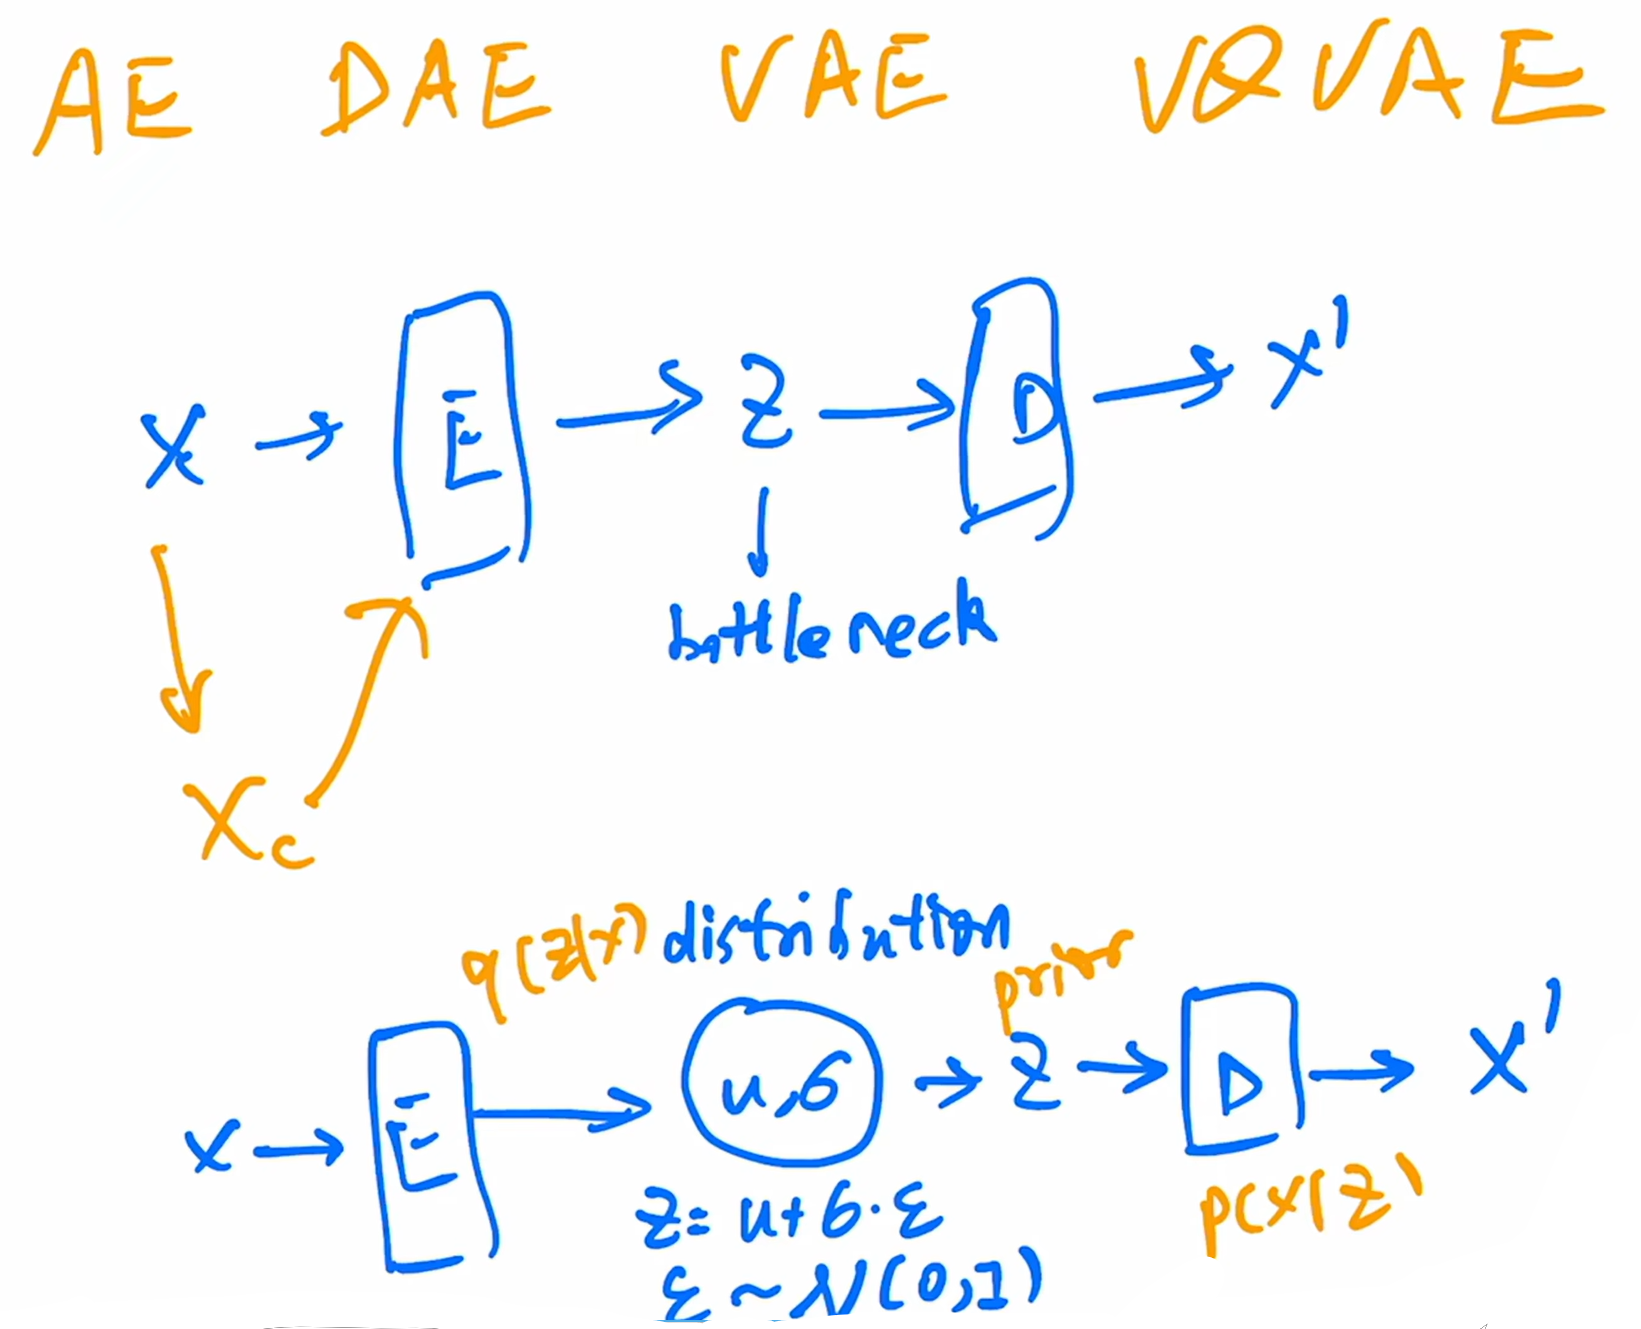 AE DAE VAE VQVAE
X → E → Z → D → X'
bottleneck
Xc
q(z|x) distribution prior
x → E → u,σ → Z → D → X'
z = u+σ·ε p(x|z)
ε ~ N(0,I)